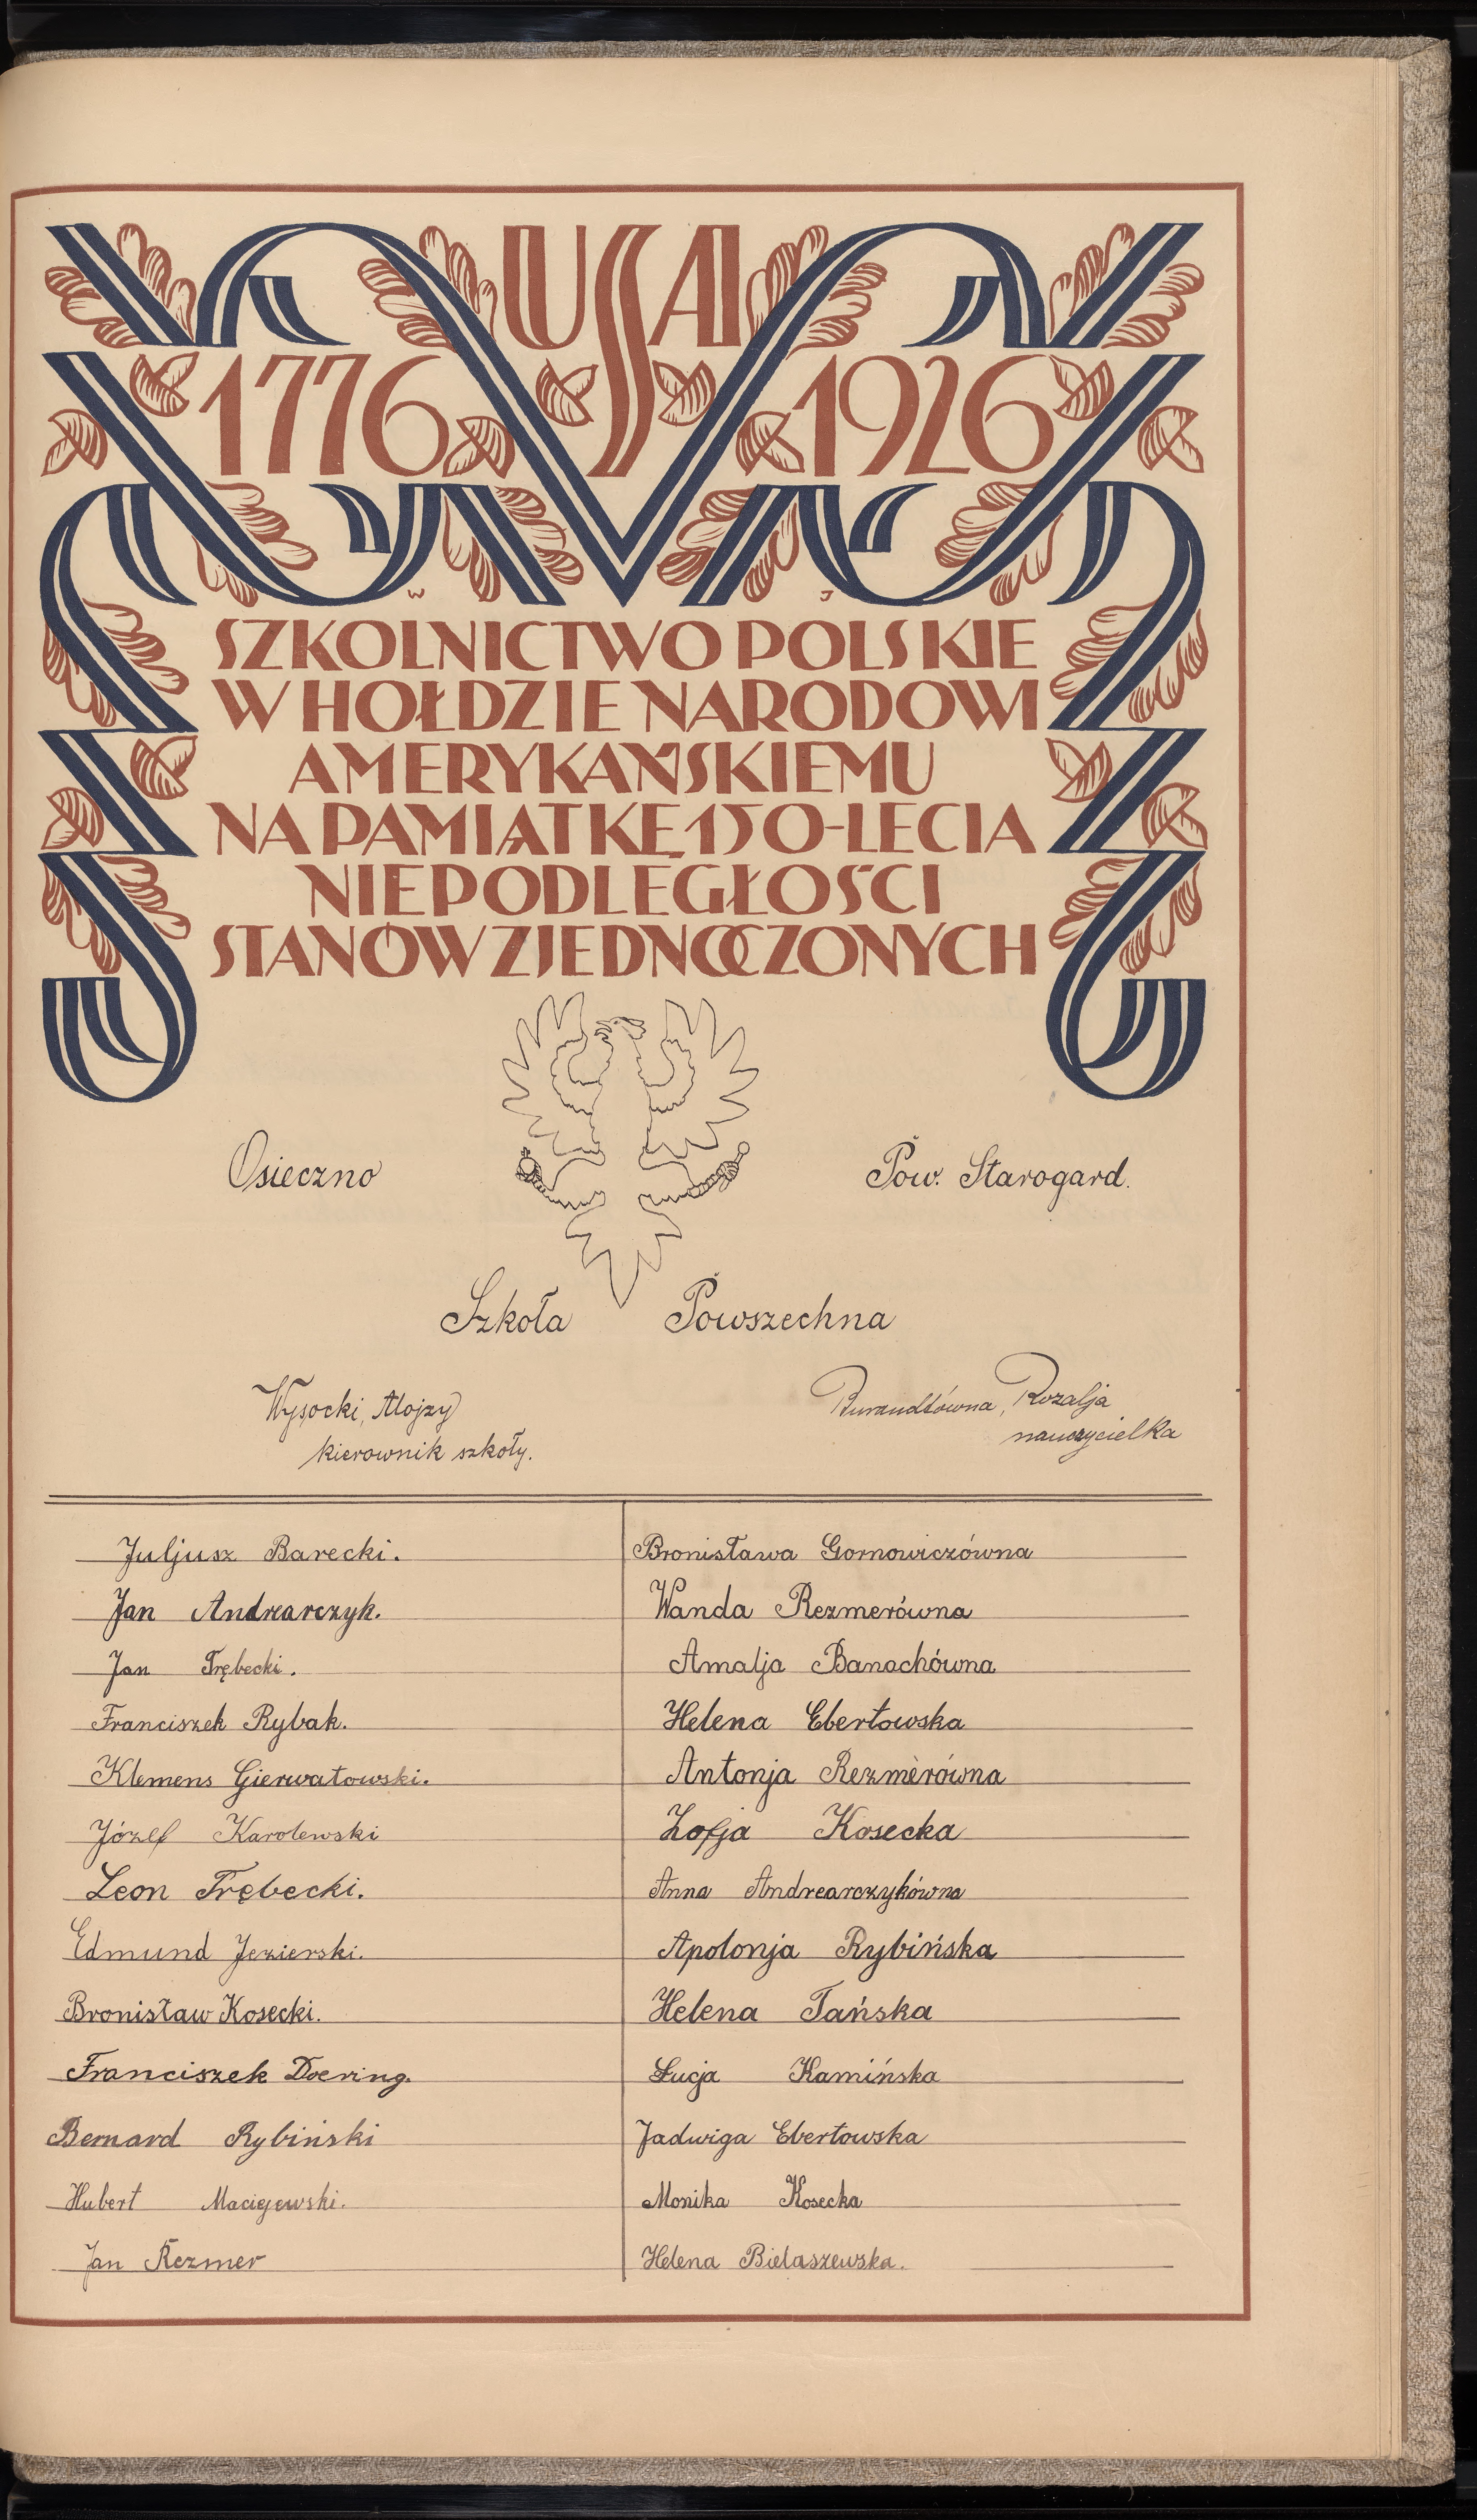 USA
1776 1926
W J
SZKOLNICTWO POLSKIE
W HOŁDZIE NARODOWI
AMERYKAŃSKIEMU
NA PAMIĄTKĘ 150-LECIA
NIEPODLEGŁOŚCI
STANÓW ZJEDNOCZONYCH
Osieczno Pow. Starogard.
Szkoła Powszechna
Wysocki, Alojzy Burandtówna, Rozalja
kierownik szkoły. nauczycielka
Juljusz Barecki. Bronisława Gornowiczówna
Jan Andrearczyk. Wanda Rezmerówna
Jan Trębecki. Amalja Banachówna
Franciszek Rybak. Helena Ebertowska
Klemens Gierwatowski. Antonja Rezmerówna
Józef Karolewski Zofja Kosecka
Leon Trębecki. Anna Andrearczykówna
Edmund Jezierski. Apolonja Rybińska
Bronisław Kosecki. Helena Tańska
Franciszek Doering. Łucja Kamińska
Bernard Rybiński Jadwiga Ebertowska
Hubert Maciejewski. Monika Kosecka
Jan Rezmer Helena Bielaszewska.